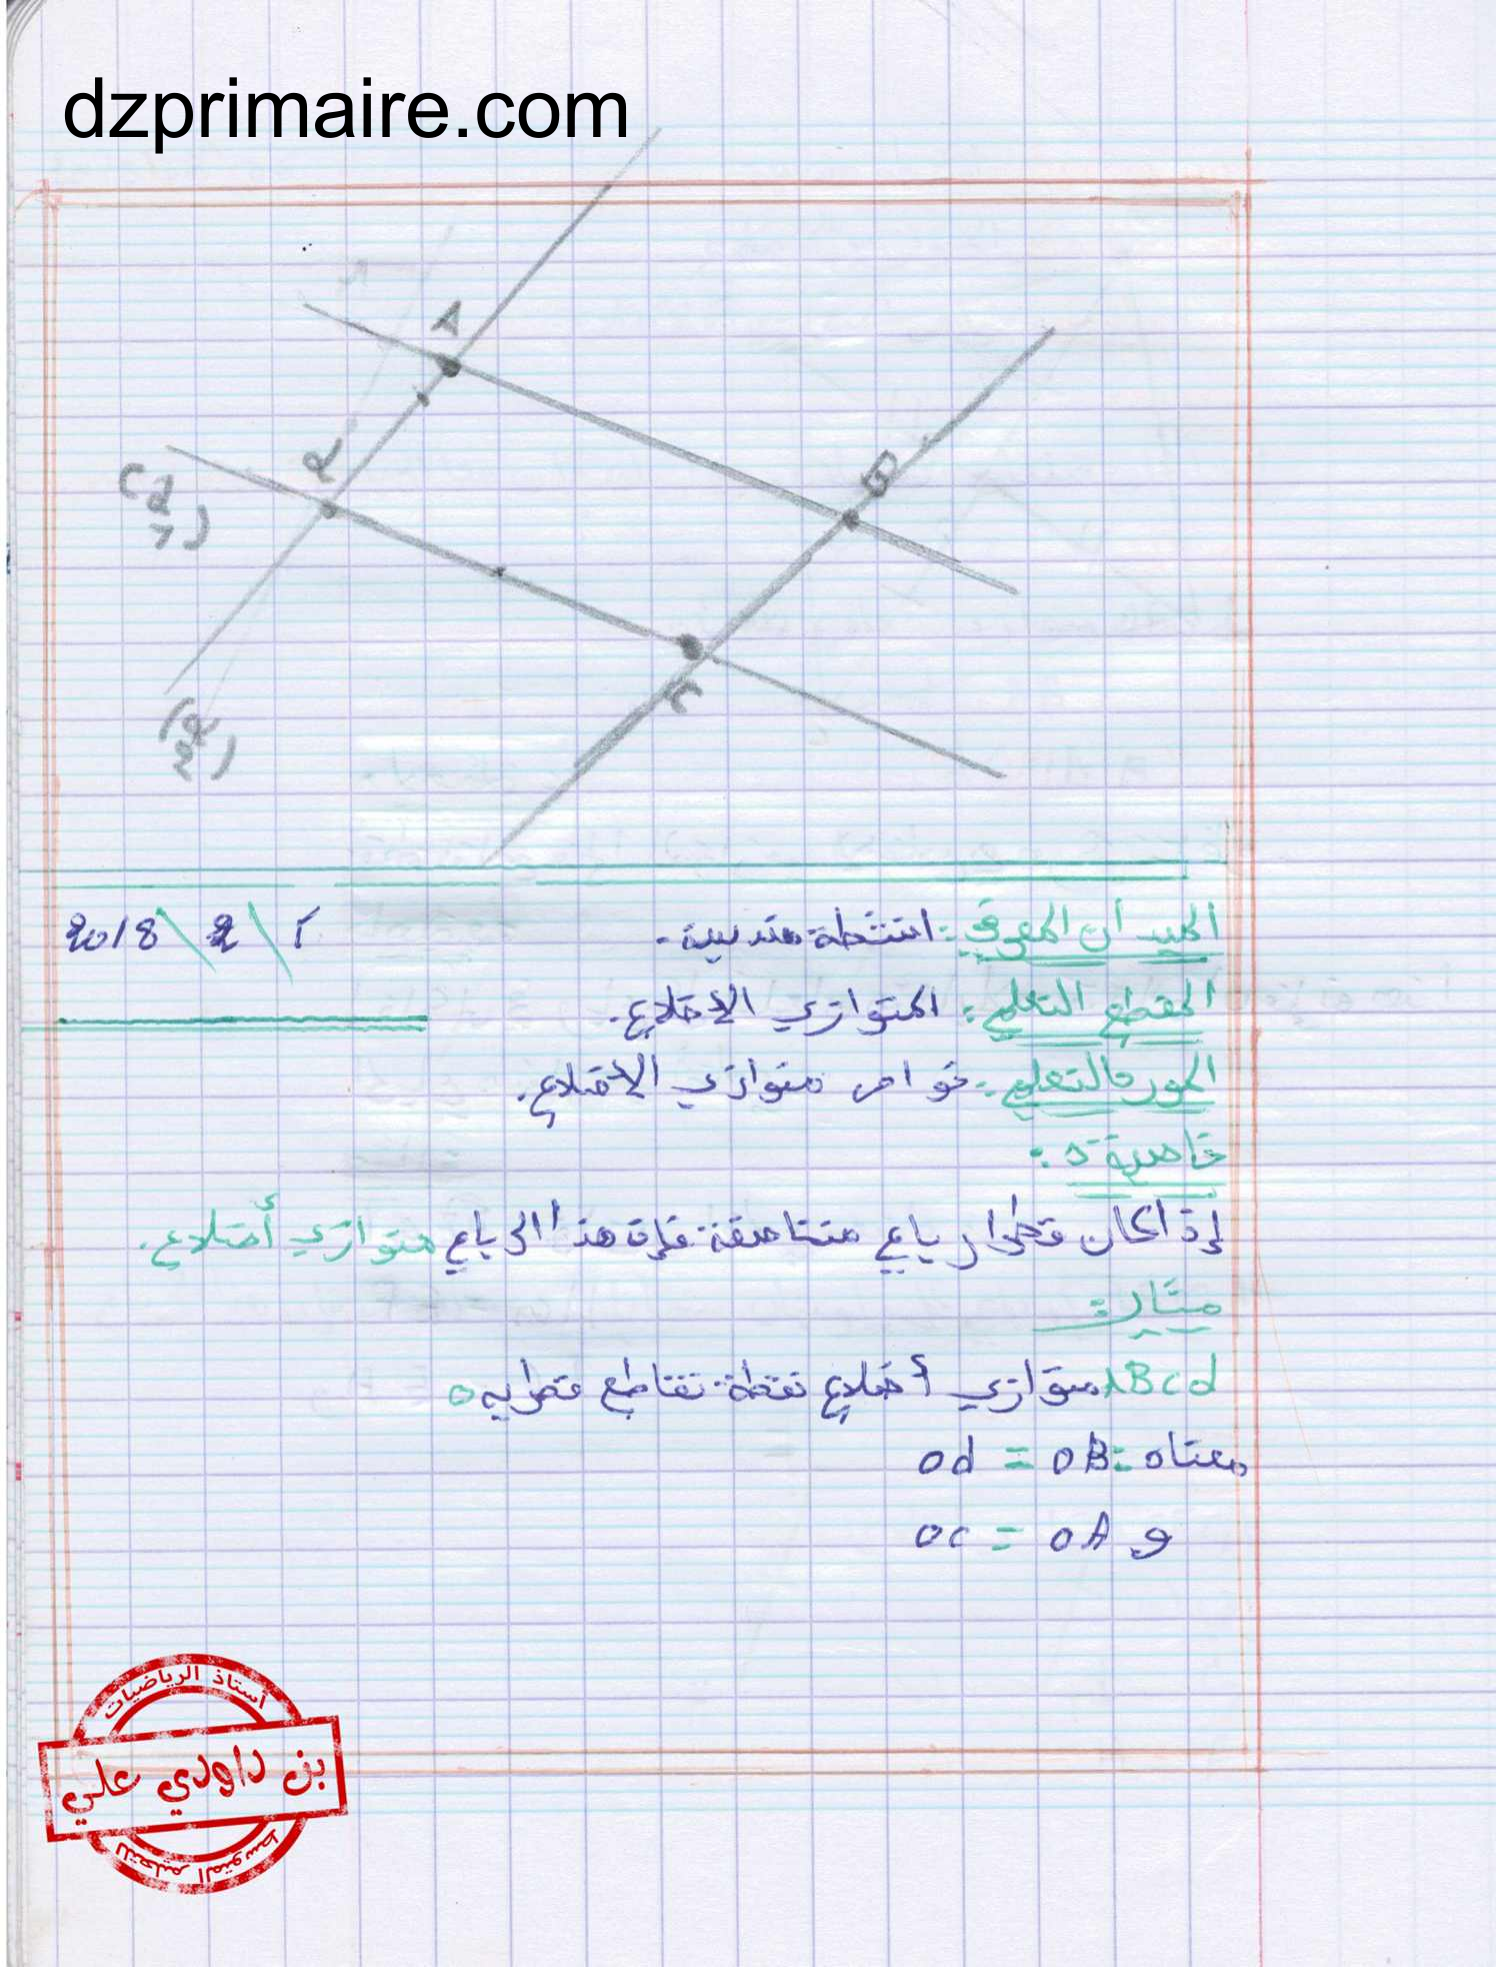 dzprimaire.com
A
B
d
(d
1)
c
(d
2)
الميدان المعرفي: انشطة هندسية. 2018\2\1
المقطع التعلمي: المتوازي الاضلاع.
المورد التعلمي: خواص متوازي الاضلاع.
خاصية 5:
إذا كان قطرا رباعي متناصفة فإن هذا الرباعي متوازي أضلاع.
مثال:
ABcd متوازي أضلاع نقطة تقاطع قطرايه o
معناه: od = oB
و oc = oA
أستاذ الرياضيات
بن داودي علي
للتعليم المتوسط